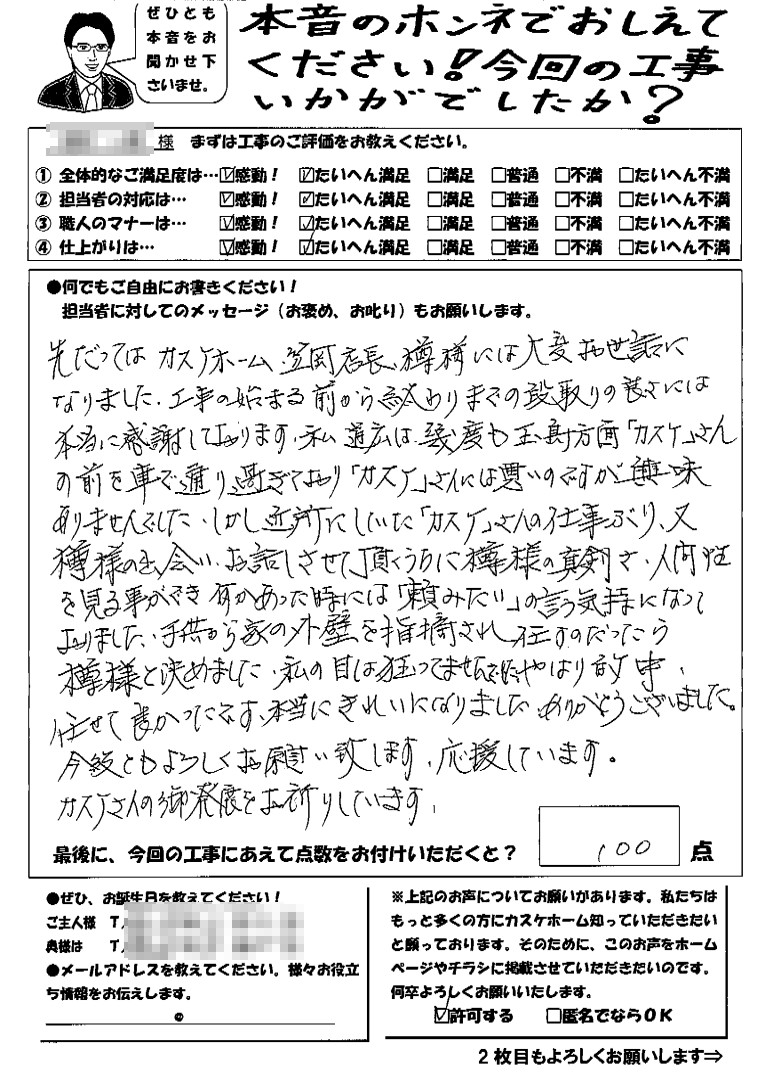 ぜひとも
本音をお
聞かせ下
さいませ。
本音のホンネでおしえて
ください!今回の工事
いかがでしたか?
様 まずは工事のご評価をお教えください。
① 全体的なご満足度は… ☑感動! ☑たいへん満足 □満足 □普通 □不満 □たいへん不満
② 担当者の対応は… ☑感動! ☑たいへん満足 □満足 □普通 □不満 □たいへん不満
③ 職人のマナーは… ☑感動! ☑たいへん満足 □満足 □普通 □不満 □たいへん不満
④ 仕上がりは… ☑感動! ☑たいへん満足 □満足 □普通 □不満 □たいへん不満
●何でもご自由にお書きください!
担当者に対してのメッセージ(お褒め、お叱り)もお願いします。
先だっては カスケホーム 笠岡店長、樽様には大変お世話に
なりました。工事の始まる前から終わりまでの段取りの良さには
本当に感謝しております。私 道広は 幾度も玉島方面「カスケ」さん
の前を車で通り過ぎており「カスケ」さんには悪いのですが興味
ありませんでした。しかし近所にしていた「カスケ」さんの仕事ぶり、又
樽様の出会い、お話しさせて頂くうちに樽様の真剣さ、人間性
を見る事ができ 何かあった時には「頼みたい」の言う気持になって
おりました。子供から家の外壁を指摘され 任すのだったら
樽様と決めました。私の目は狂ってませんでした やはり的中、
任せて良かったです。本当にきれいになりました。ありがとうございました。
今後ともよろしくお願い致します。応援しています。
カスケさんの御発展をお祈りしています。
最後に、今回の工事にあえて点数をお付けいただくと? 100 点
●ぜひ、お誕生日を教えてください!
ご主人様 T
奥様は T
●メールアドレスを教えてください。様々お役立
ち情報をお伝えします。
@
※上記のお声についてお願いがあります。私たちは
もっと多くの方にカスケホーム知っていただきたい
と願っております。そのために、このお声をホーム
ページやチラシに掲載させていただきたいのです。
何卒よろしくお願いいたします。
☑許可する □匿名でならOK
2枚目もよろしくお願いします⇒